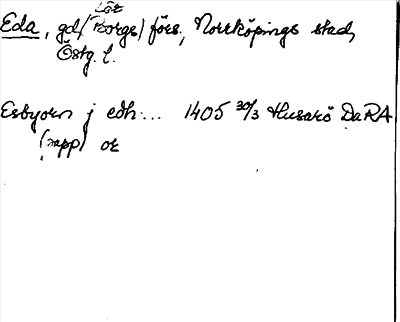 Löt
Eda, gd/(Borgs) förs., Norrköpings stad,
Östg. l.
Esbyorn j edh... 1405 30/3 Husarö DaRA
(papp) or